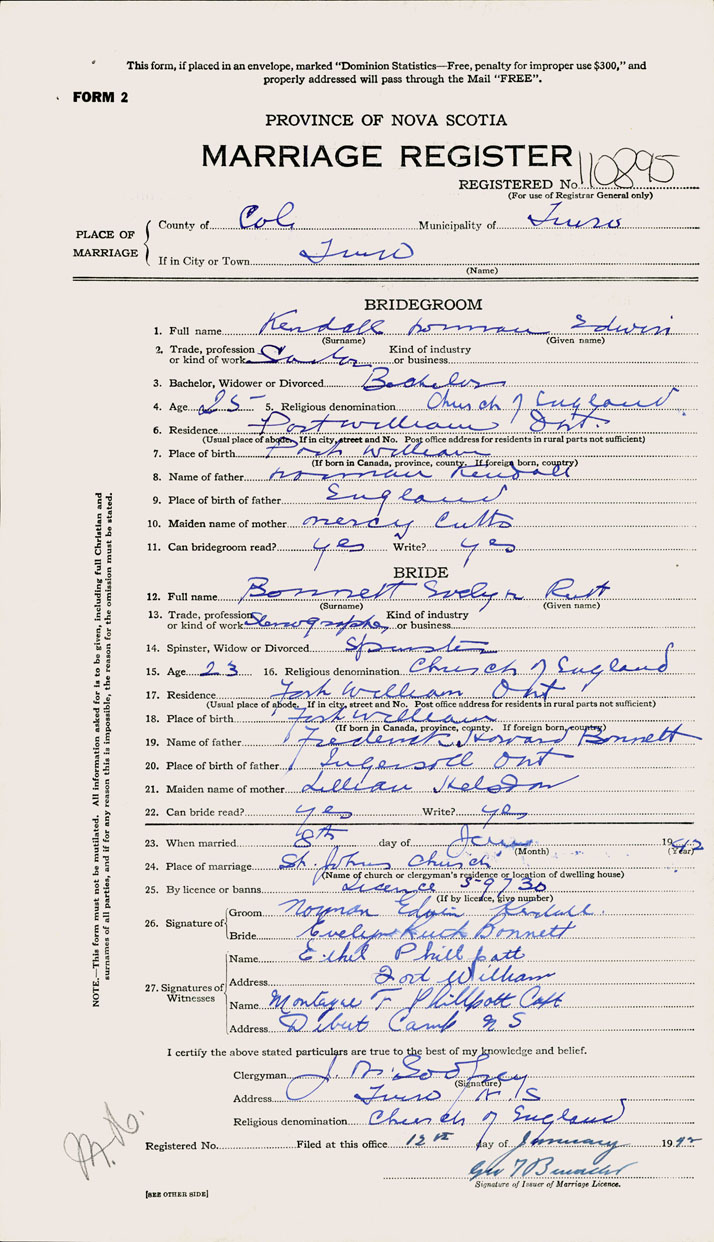 This form, if placed in an envelope, marked "Dominion Statistics—Free, penalty for improper use $300," and
properly addressed will pass through the Mail "FREE".
FORM 2
PROVINCE OF NOVA SCOTIA
MARRIAGE REGISTER
REGISTERED No. 110895
(For use of Registrar General only)
PLACE OF MARRIAGE
County of Col. Municipality of Truro
If in City or Town Truro
(Name)
BRIDEGROOM
1. Full name Kendall Norman Edwin
(Surname) (Given name)
2. Trade, profession or kind of work Kind of industry or business
3. Bachelor, Widower or Divorced Bachelor
4. Age 25 5. Religious denomination Church of England
6. Residence Fort William Ont.
(Usual place of abode. If in city, street and No. Post office address for residents in rural parts not sufficient)
7. Place of birth Fort William
(If born in Canada, province, county. If foreign born, country)
8. Name of father Norman Kendall
9. Place of birth of father England
10. Maiden name of mother Mercy Cutts
11. Can bridegroom read? yes Write? yes
BRIDE
12. Full name Bonnett Evelyn Ruth
(Surname) (Given name)
13. Trade, profession or kind of work Stenographer Kind of industry or business
14. Spinster, Widow or Divorced Spinster
15. Age 23 16. Religious denomination Church of England
17. Residence Fort William Ont
(Usual place of abode. If in city, street and No. Post office address for residents in rural parts not sufficient)
18. Place of birth Fort William
(If born in Canada, province, county. If foreign born, country)
19. Name of father Frederick Howard Bonnett
20. Place of birth of father Ingersoll Ont
21. Maiden name of mother Lillian
22. Can bride read? yes Write? yes
23. When married 8th day of Jan 1942
(Month) (Year)
24. Place of marriage St. Johns Church
(Name of church or clergyman's residence or location of dwelling house)
25. By licence or banns Licence 59730
(If by licence, give number)
26. Signature of
Groom Norman Edwin Kendall.
Bride Evelyn Ruth Bonnett
27. Signatures of Witnesses
Name Ethel Phillpott
Address Fort William
Name Montague F Phillpott Capt
Address Debert Camp N S
I certify the above stated particulars are true to the best of my knowledge and belief.
Clergyman J. N.
(Signature)
Address Truro N. S
Religious denomination Church of England
Registered No. Filed at this office 12th day of January 1942
Signature of Issuer of Marriage Licence.
[SEE OTHER SIDE]
NOTE.—This form must not be mutilated. All information asked for is to be given, including full Christian and
surnames of all parties, and if for any reason this is impossible, the reason for the omission must be stated.